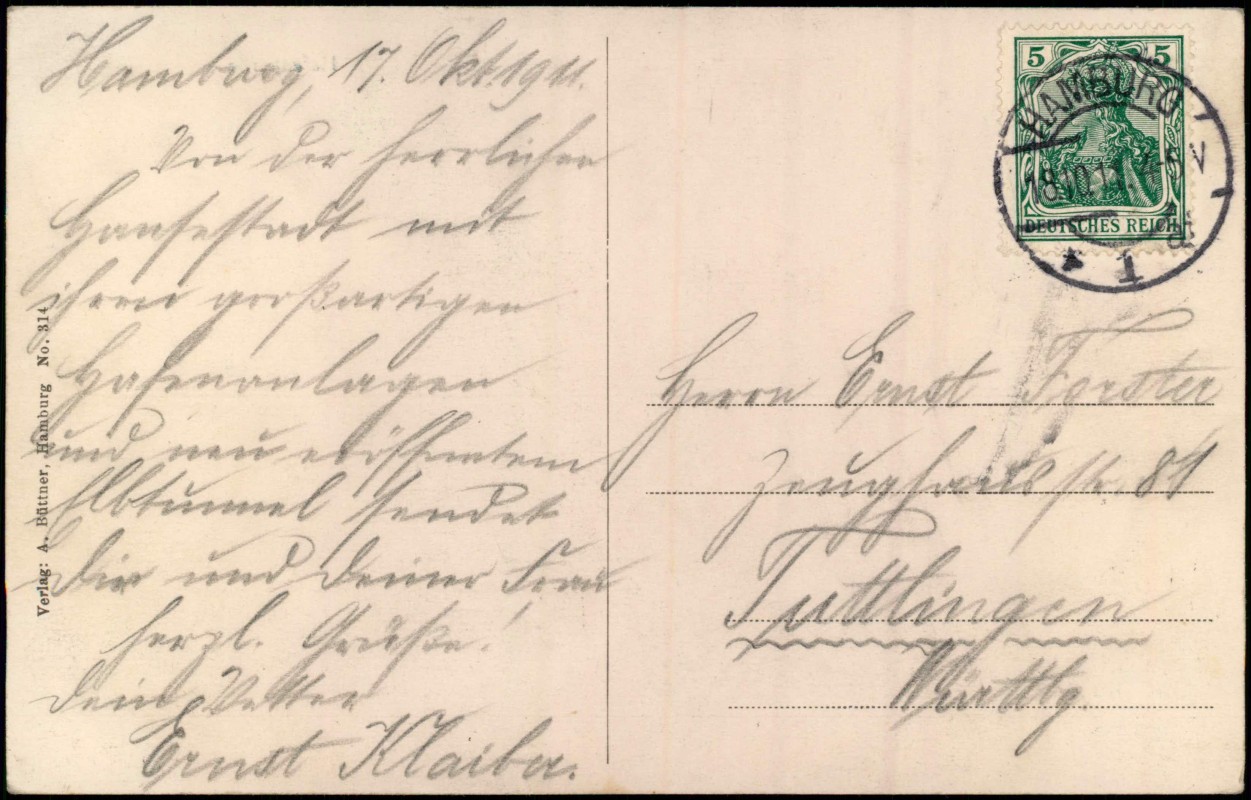 Hamburg, 17. Okt. 1911.
Von der herrlichen
Hansestadt mit
ihren großartigen
Hafenanlagen
und neu eröffnetem
Elbtunnel sendet
Dir und Deiner Frau
herzl. Grüße!
Dein Vetter
Ernst Klaiber.
Verlag: A. Büttner, Hamburg No. 314
5 5
DEUTSCHES REICH
HAMBURG
18.10.11. 5-6 V
* 1 d
Herrn Ernst Forster
Zeughausstr. 81
Tuttlingen
Württbg.